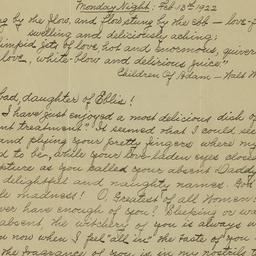 Monday Night: Feb 13th 1922
ng by the flow, and flow stung by the ebb - love-f
swelling and deliciously aching;
limpid jets of love hot and enormous, quiver
love, white-blow and delirious juice."
Children Of Adam - Walt W
bad, daughter of Eblis!
I have just enjoyed a most delicious dish of
treatment" It seemed what I could see
and plying your pretty fingers where my
d to be, while your love-laden eyes close
pture as you called your absent Daddy
delightful and naughty names. Go
le madness! O, Greatest of all Women
ver have enough of you! Sleeping or wa
absent, the witchery of you is always w
n now when I feel "all in" the taste of you
the fragrance of you is in my nostrils t